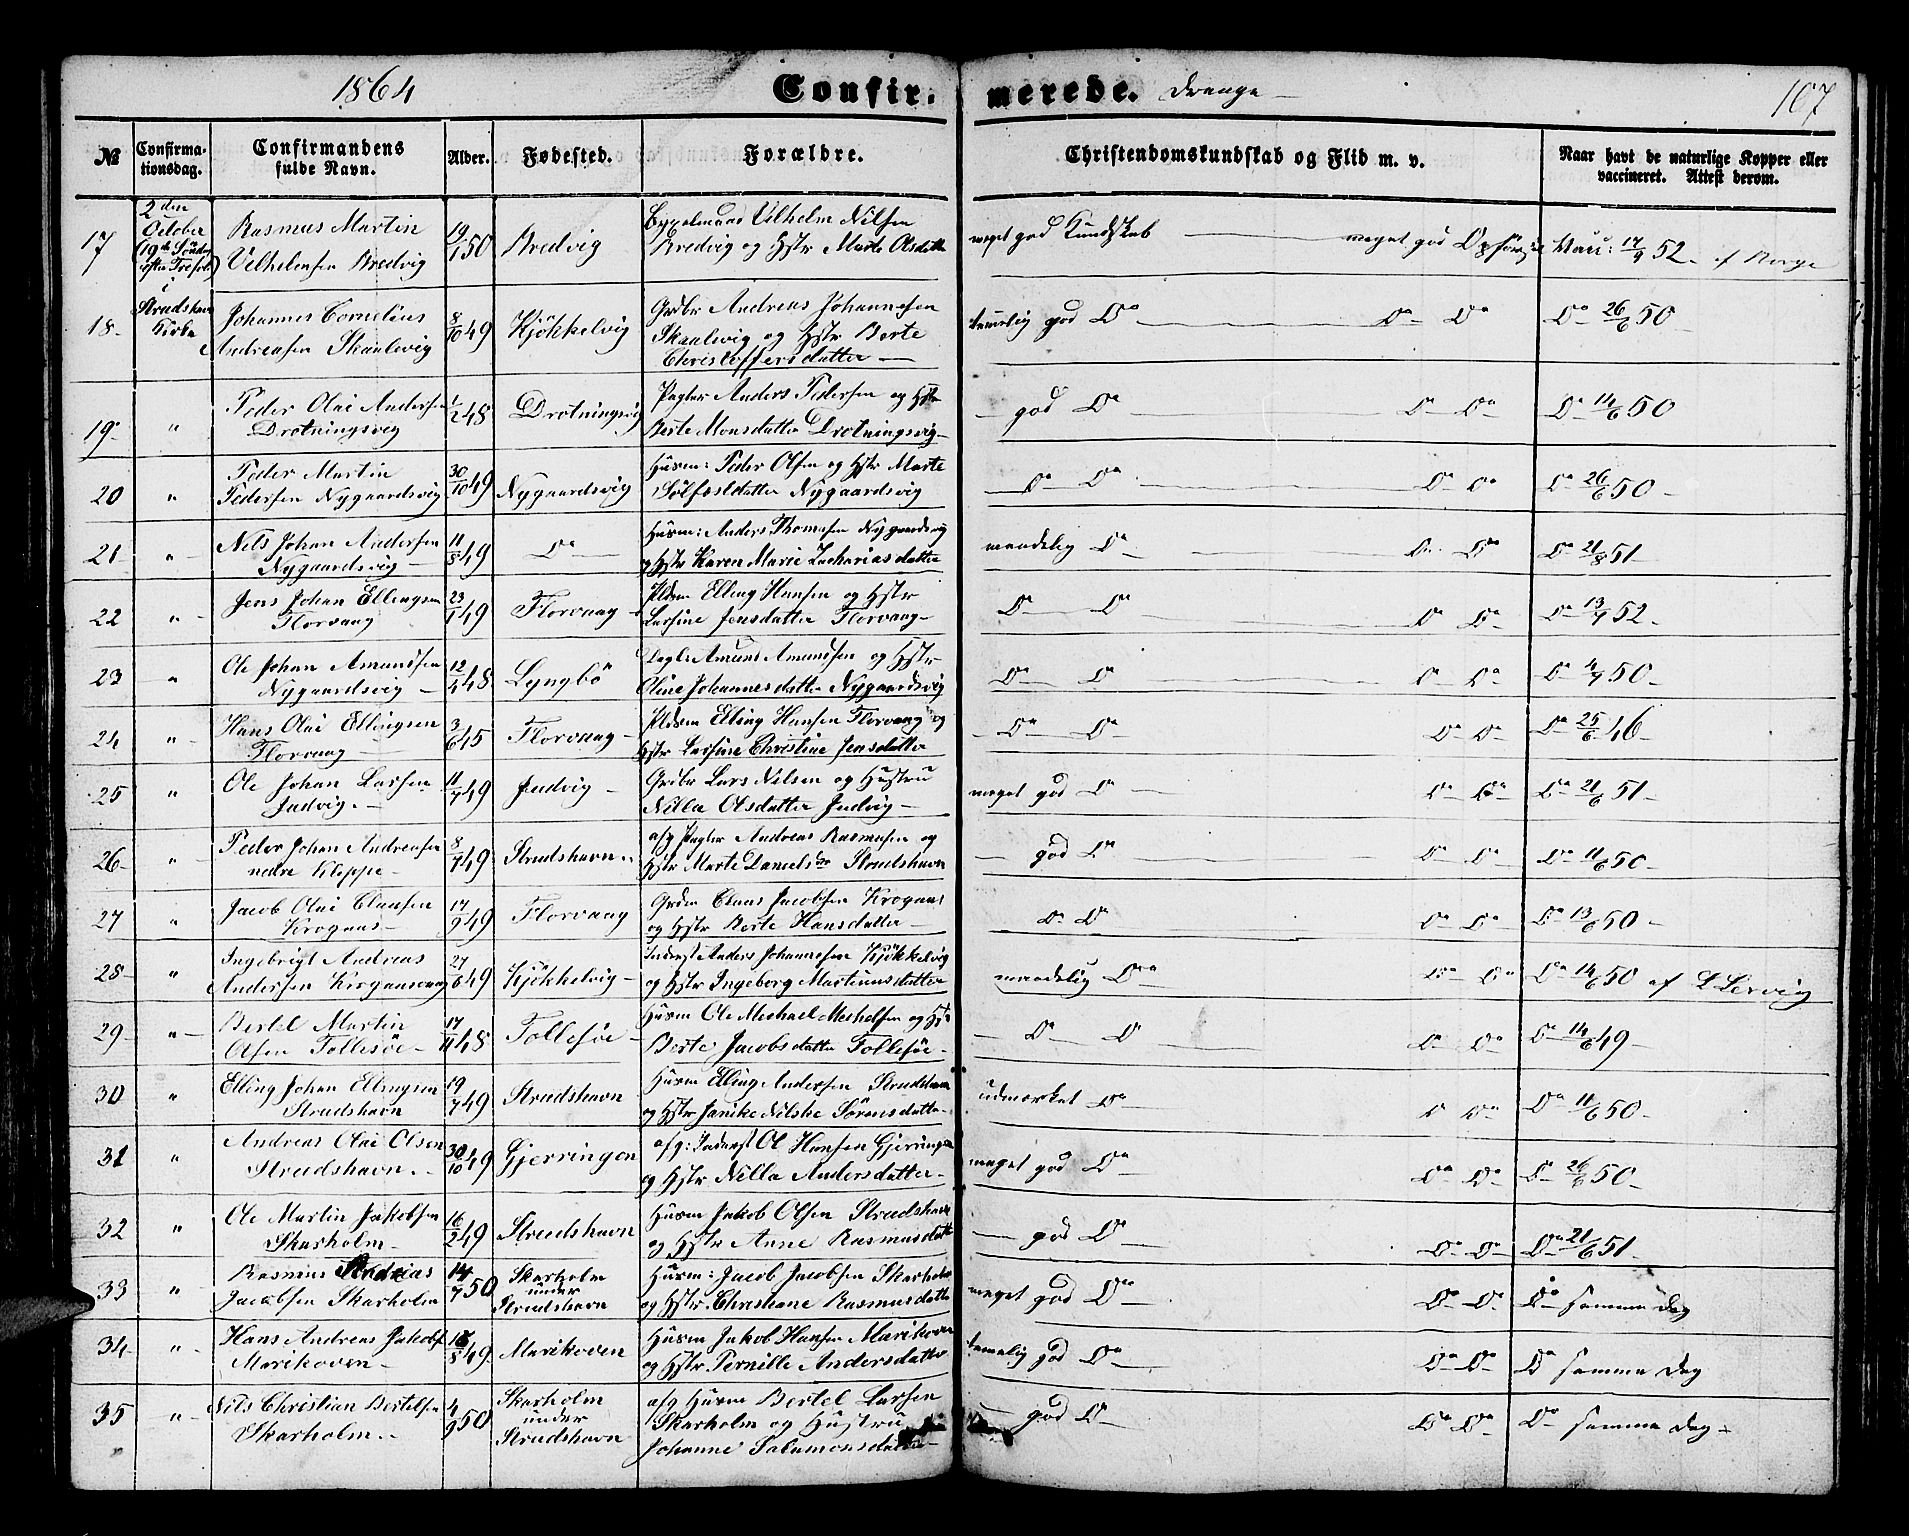 1864 Confir- merede. Drenge 107
№ Confirma-tionsdag. Confirmandens fulde Navn. Alder. Fødested. Forældre. Christendomskundskab og Flid m. v. Naar havt de naturlige Kopper eller vaccineret. Attest derom.
17 2den October (19de Söndag efter Trefold) i Strudshavn Kirke
Rasmus Martin Vilhelmsen Bredvig 19/1 50 Bredvig Vilhelm Nilsen Bredvig og Hstr Marte Olsdatter meget god Kundskab meget god Opförsel Vacc: 17/9 52
18 Johannes Cornelius Andreasen Skaalevig 8/10 49 Kjökkelvig Grdbr Andreas Johannesen Skaalevig og Hstr Berte Christoffersdatter temelig god Do Do Do Do 26/6 50
19 " Peder Olai Andersen Drotningsvig 1/2 48 Drotningsvig Pagter Anders Pedersen og Hstr Berte Monsdatter Drotningsvig god Do Do Do Do 14/6 50
20 " Peder Martin Pedersen Nygaardsvig 30/10 49 Nygaardsvig Husm: Peder Olsen og Hstr Marte Sölfestdatter Nygaardsvig Do Do Do Do Do 26/6 50
21 " Nels Johan Andersen Nygaardsvig 11/8 49 Do Husm: Anders Thomesen Nygaardsvig og Hstr Karen Marie Zachariasdatter maadelig Do Do Do Do 21/8 51
22 " Jens Johan Ellingsen Florvaag 23/1 49 Florvaag Pldsm Elling Hansen og Hstr Larsine Jensdatter Florvaag Do Do Do Do Do 13/7 52
23 " Ole Johan Amundsen Nygaardsvig 12/4 48 Lyngbö Amund Amundsen og Hstr Oline Johannesdatter Nygaardsvig Do Do Do Do Do 4/7 50
24 " Hans Olai Ellingsen Florvaag 3/6 45 Florvaag Pldsm Elling Hansen Florvaag og Hstr Larsine Christine Jensdatter Do Do Do Do Do 25/6 46
25 " Ole Johan Larsen Judvig 11/7 49 Judvig Grdbr Lars Nilsen og Hustru Nilla Olsdatter Judvig meget god Do Do Do Do 21/6 51
26 " Peder Johan Andreasen nedre Kleppe 8/7 49 Strudshavn afg Pagter Andreas Rasmusen og Hstr Marte Danielsdtr Strudshavn god Do Do Do Do 11/6 50
27 " Jacob Olai Clausen Krogaas 17/9 49 Florvaag Grdm Claus Jacobsen Krogaas og Hstr Berte Hansdatter Do Do Do Do Do 13/6 50
28 " Ingebrigt Andreas Andersen Krogaasvaag 27/6 49 Kjökkelvig Inderst Anders Johannesen Kjökkelvig og Hstr Ingeborg Martinusdatter maadelig Do Do Do Do 14/6 50 af L Lervig
29 " Bertel Martin Olsen Tollesöe 17/11 48 Tollesöe Husm Ole Michael Michelsen og Hstr Berte Jacobsdatter Tollesöe Do Do Do Do Do 14/6 49
30 " Elling Johan Ellingsen Strudshavn 19/7 49 Strudshavn Husm Elling Andersen Strudshavn og Hstr Janike Nilske Sörensdatter udmærket Do Do Do Do 11/6 50
31 " Andreas Olai Olsen Strudshavn 30/10 49 Gjerringen afg: Inderst Ol Hansen Gjerringen og Hstr Nilla Andersdatter meget god Do Do Do Do 26/6 50
32 " Ole Martin Jakobsen Skarholm 16/2 49 Strudshavn Husm Jakob Olsen Strudshavn og Hstr Anne Rasmusdatter god Do Do Do Do 21/6 51
33 " Rasmus Andreas Jacobsen Skarholm 14/7 50 Skarholm under Strudshavn Husm: Jacob Jacobsen Skarholm og Hstr Christiane Rasmusdatter meget god Do Do Do Do samme Dag
34 " Hans Andreas Jakobs Marikoven 18/8 49 Marikoven Husm Jakob Hansen Marikoven og Hstr Pernille Andersdatter temelig god Do Do Do Do samme Dag
35 " Nils Christian Bertelsen Skarholm 4/9 50 Skarholm under Strudshavn afg Husm Bertel Larsen Skarholm og Hustru Johanne Salamonsdatter god Do Do Do Do samme Dag